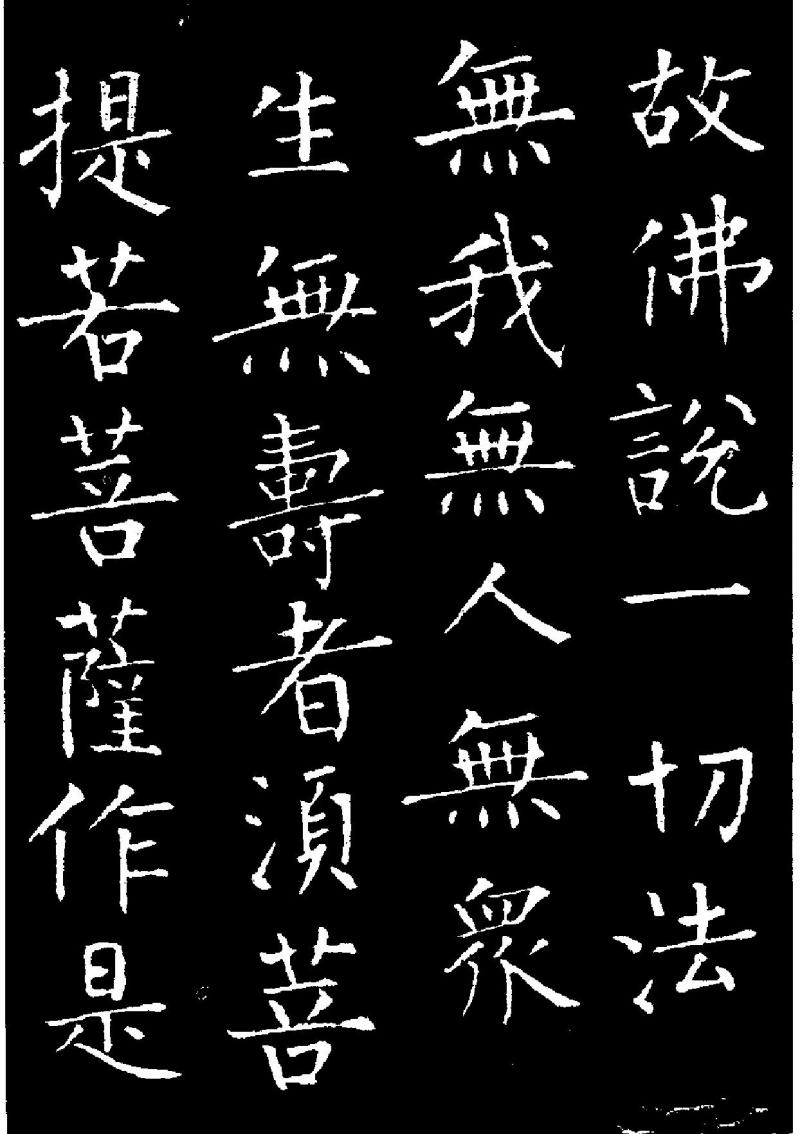 故佛說一切法
無我無人無眾
生無壽者須菩
提若菩薩作是